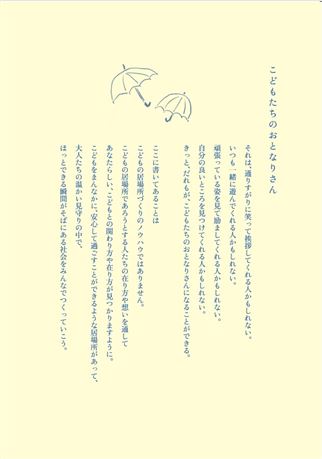 こどもたちのおとなりさん
それは、通りすがりに笑って挨拶してくれる人かもしれない。
いつも一緒に遊んでくれる人かもしれない。
頑張っている姿を見て励ましてくれる人かもしれない。
自分の良いところを見つけてくれる人かもしれない。
きっと、だれもが、こどもたちのおとなりさんになることができる。
ここに書いてあることは
こどもの居場所づくりのノウハウではありません。
こどもの居場所であろうとする人たちの在り方や想いを通して
あなたらしい、こどもとの関わり方や在り方が見つかりますように。
こどもをまんなかに、安心して過ごすことができるような居場所があって、
大人たちの温かい見守りの中で、
ほっとできる瞬間がそばにある社会をみんなでつくっていこう。